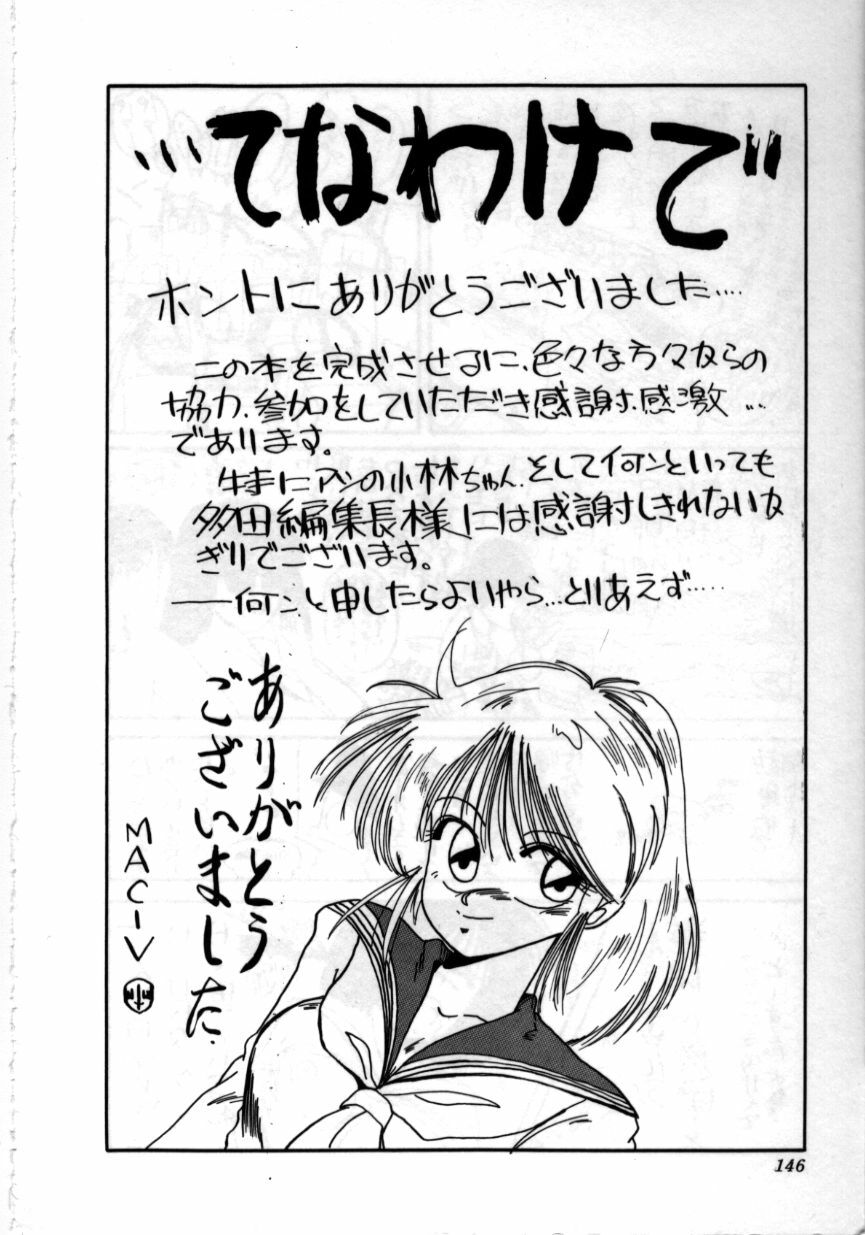 …てなわけで
ホントにありがとうございました‥‥
この本を完成させるに、色々な方々からの
協力、参加をしていただき感謝、感激…
であります。
特にアシの小林ちゃん、そして何ンといっても
多田編集長様には感謝しきれないか
ぎりでございます。
──何ンと申したらよいやら…とりあえず‥‥
ありがとう
ございました
MAC-V
146